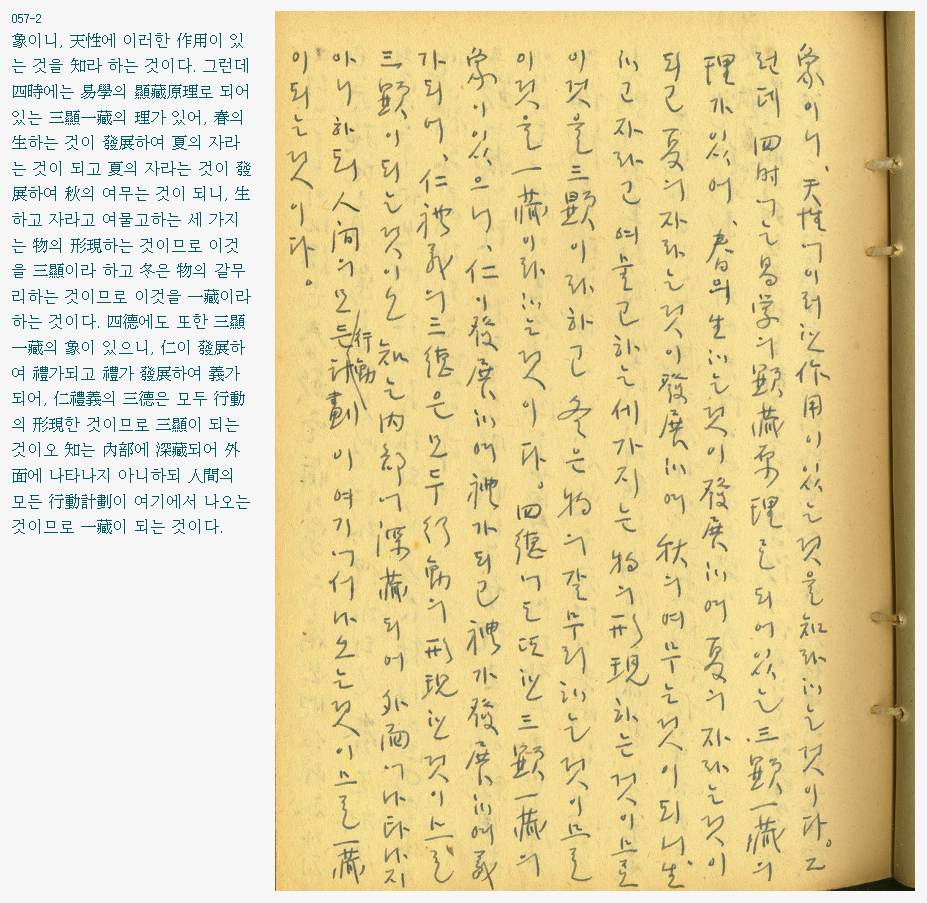 057-2
象이니, 天性에 이러한 作用이 있
는 것을 知라 하는 것이다. 그런데
四時에는 易學의 顯藏原理로 되어
있는 三顯一藏의 理가 있어, 春의
生하는 것이 發展하여 夏의 자라
는 것이 되고 夏의 자라는 것이 發
展하여 秋의 여무는 것이 되니, 生
하고 자라고 여물고하는 세 가지
는 物의 形現하는 것이므로 이것
을 三顯이라 하고 冬은 物의 갈무
리하는 것이므로 이것을 一藏이라
하는 것이다. 四德에도 또한 三顯
一藏의 象이 있으니, 仁이 發展하
여 禮가되고 禮가 發展하여 義가
되어, 仁禮義의 三德은 모두 行動
의 形現한 것이므로 三顯이 되는
것이오 知는 內部에 深藏되어 外
面에 나타나지 아니하되 人間의
모든 行動計劃이 여기에서 나오는
것이므로 一藏이 되는 것이다.
象이니, 天性에 이러한 作用이 있는 것을 知라 하는 것이다. 그
런데 四时에는 易学의 顯藏原理로 되어 있는 三顯一藏의
理가 있어, 春의 生하는 것이 發展하여 夏의 자라는 것이
되고 夏의 자라는 것이 發展하여 秋의 여무는 것이 되니, 生
하고 자라고 여물고 하는 세 가지는 物의 形現하는 것이므로
이것을 三顯이라 하고 冬은 物의 갈무리하는 것이므로
이것을 一藏이라 하는 것이다. 四德에도 또한 三顯一藏의
象이 있으니, 仁이 發展하여 禮가 되고 禮가 發展하여 義
가 되어, 仁禮義의 三德은 모두 行動의 形現한 것이므로
三顯이 되는 것이오 知는 內部에 深藏되어 外面에 나타나지
아니하되 人間의 모든 行動計劃이 여기에서 나오는 것이므로 一藏
이 되는 것이다.